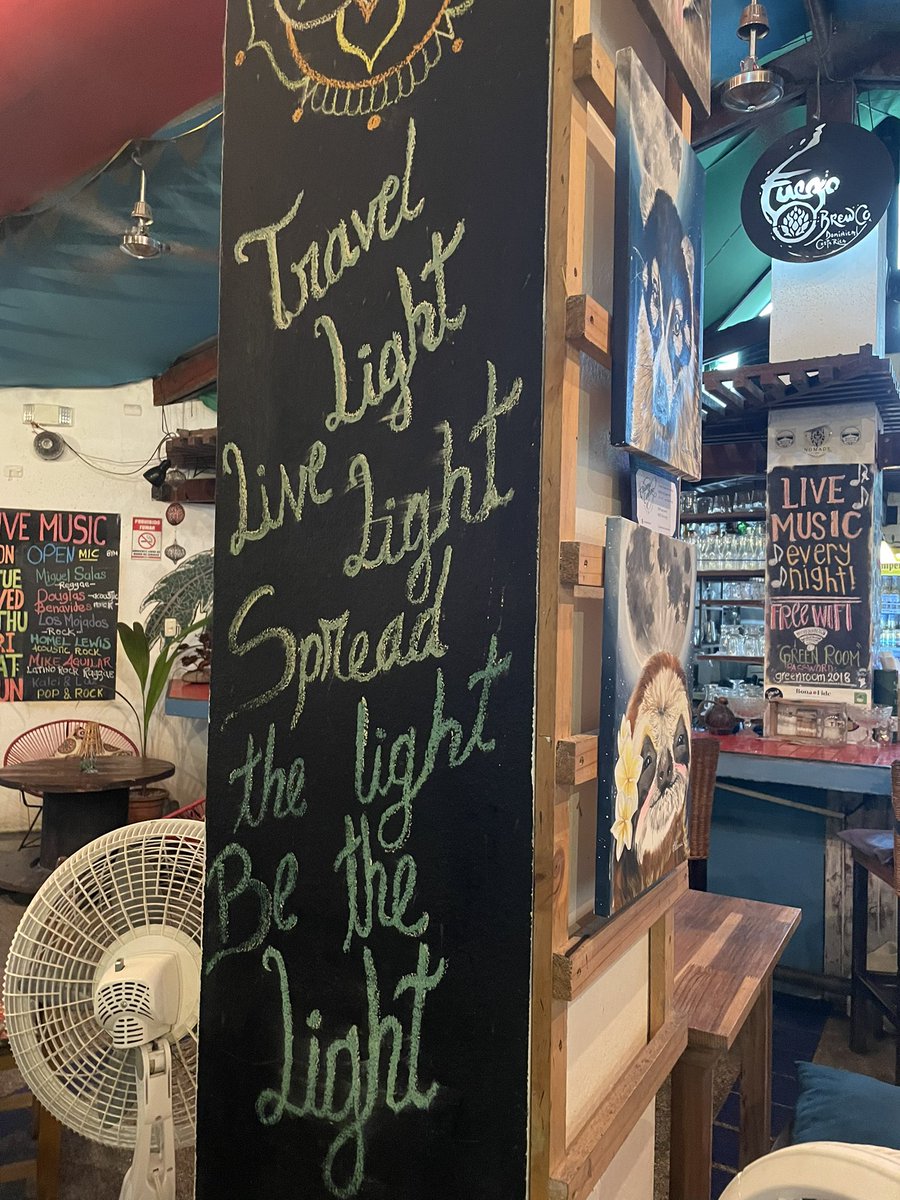 Travel
Light
Live Light
Spread
the light
Be the
Light
Fuego
Brew Co.
Dominical
Costa Rica
NOMADE
LIVE
MUSIC
every
night!
FREE WIFI
GREEN ROOM
PASSWORD
greenroom2018
Bona Fide
VE MUSIC
ON OPEN MIC 8PM
TUE Miguel Salas
Reggae
ED Douglas ACOUSTIC
Benavides ROCK
THU Los Mojados
ROCK
RI HOMEL LEWIS
ACOUSTIC ROCK
AT MIKE AGUILAR
LATINO ROCK REGGAE
UN
POP & ROCK
PROHIBIDO
FUMAR